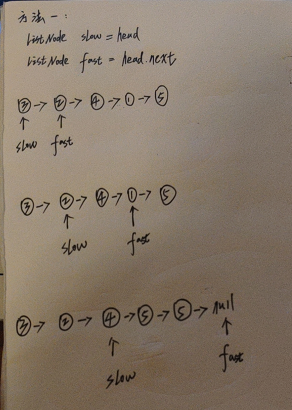 方法一:
ListNode slow = head
ListNode fast = head.next
3 → 2 → 4 → 1 → 5
↑ ↑
slow fast
3 → 2 → 4 → 1 → 5
↑ ↑
slow fast
3 → 2 → 4 → 5 → 5 → null
↑ ↑
slow fast